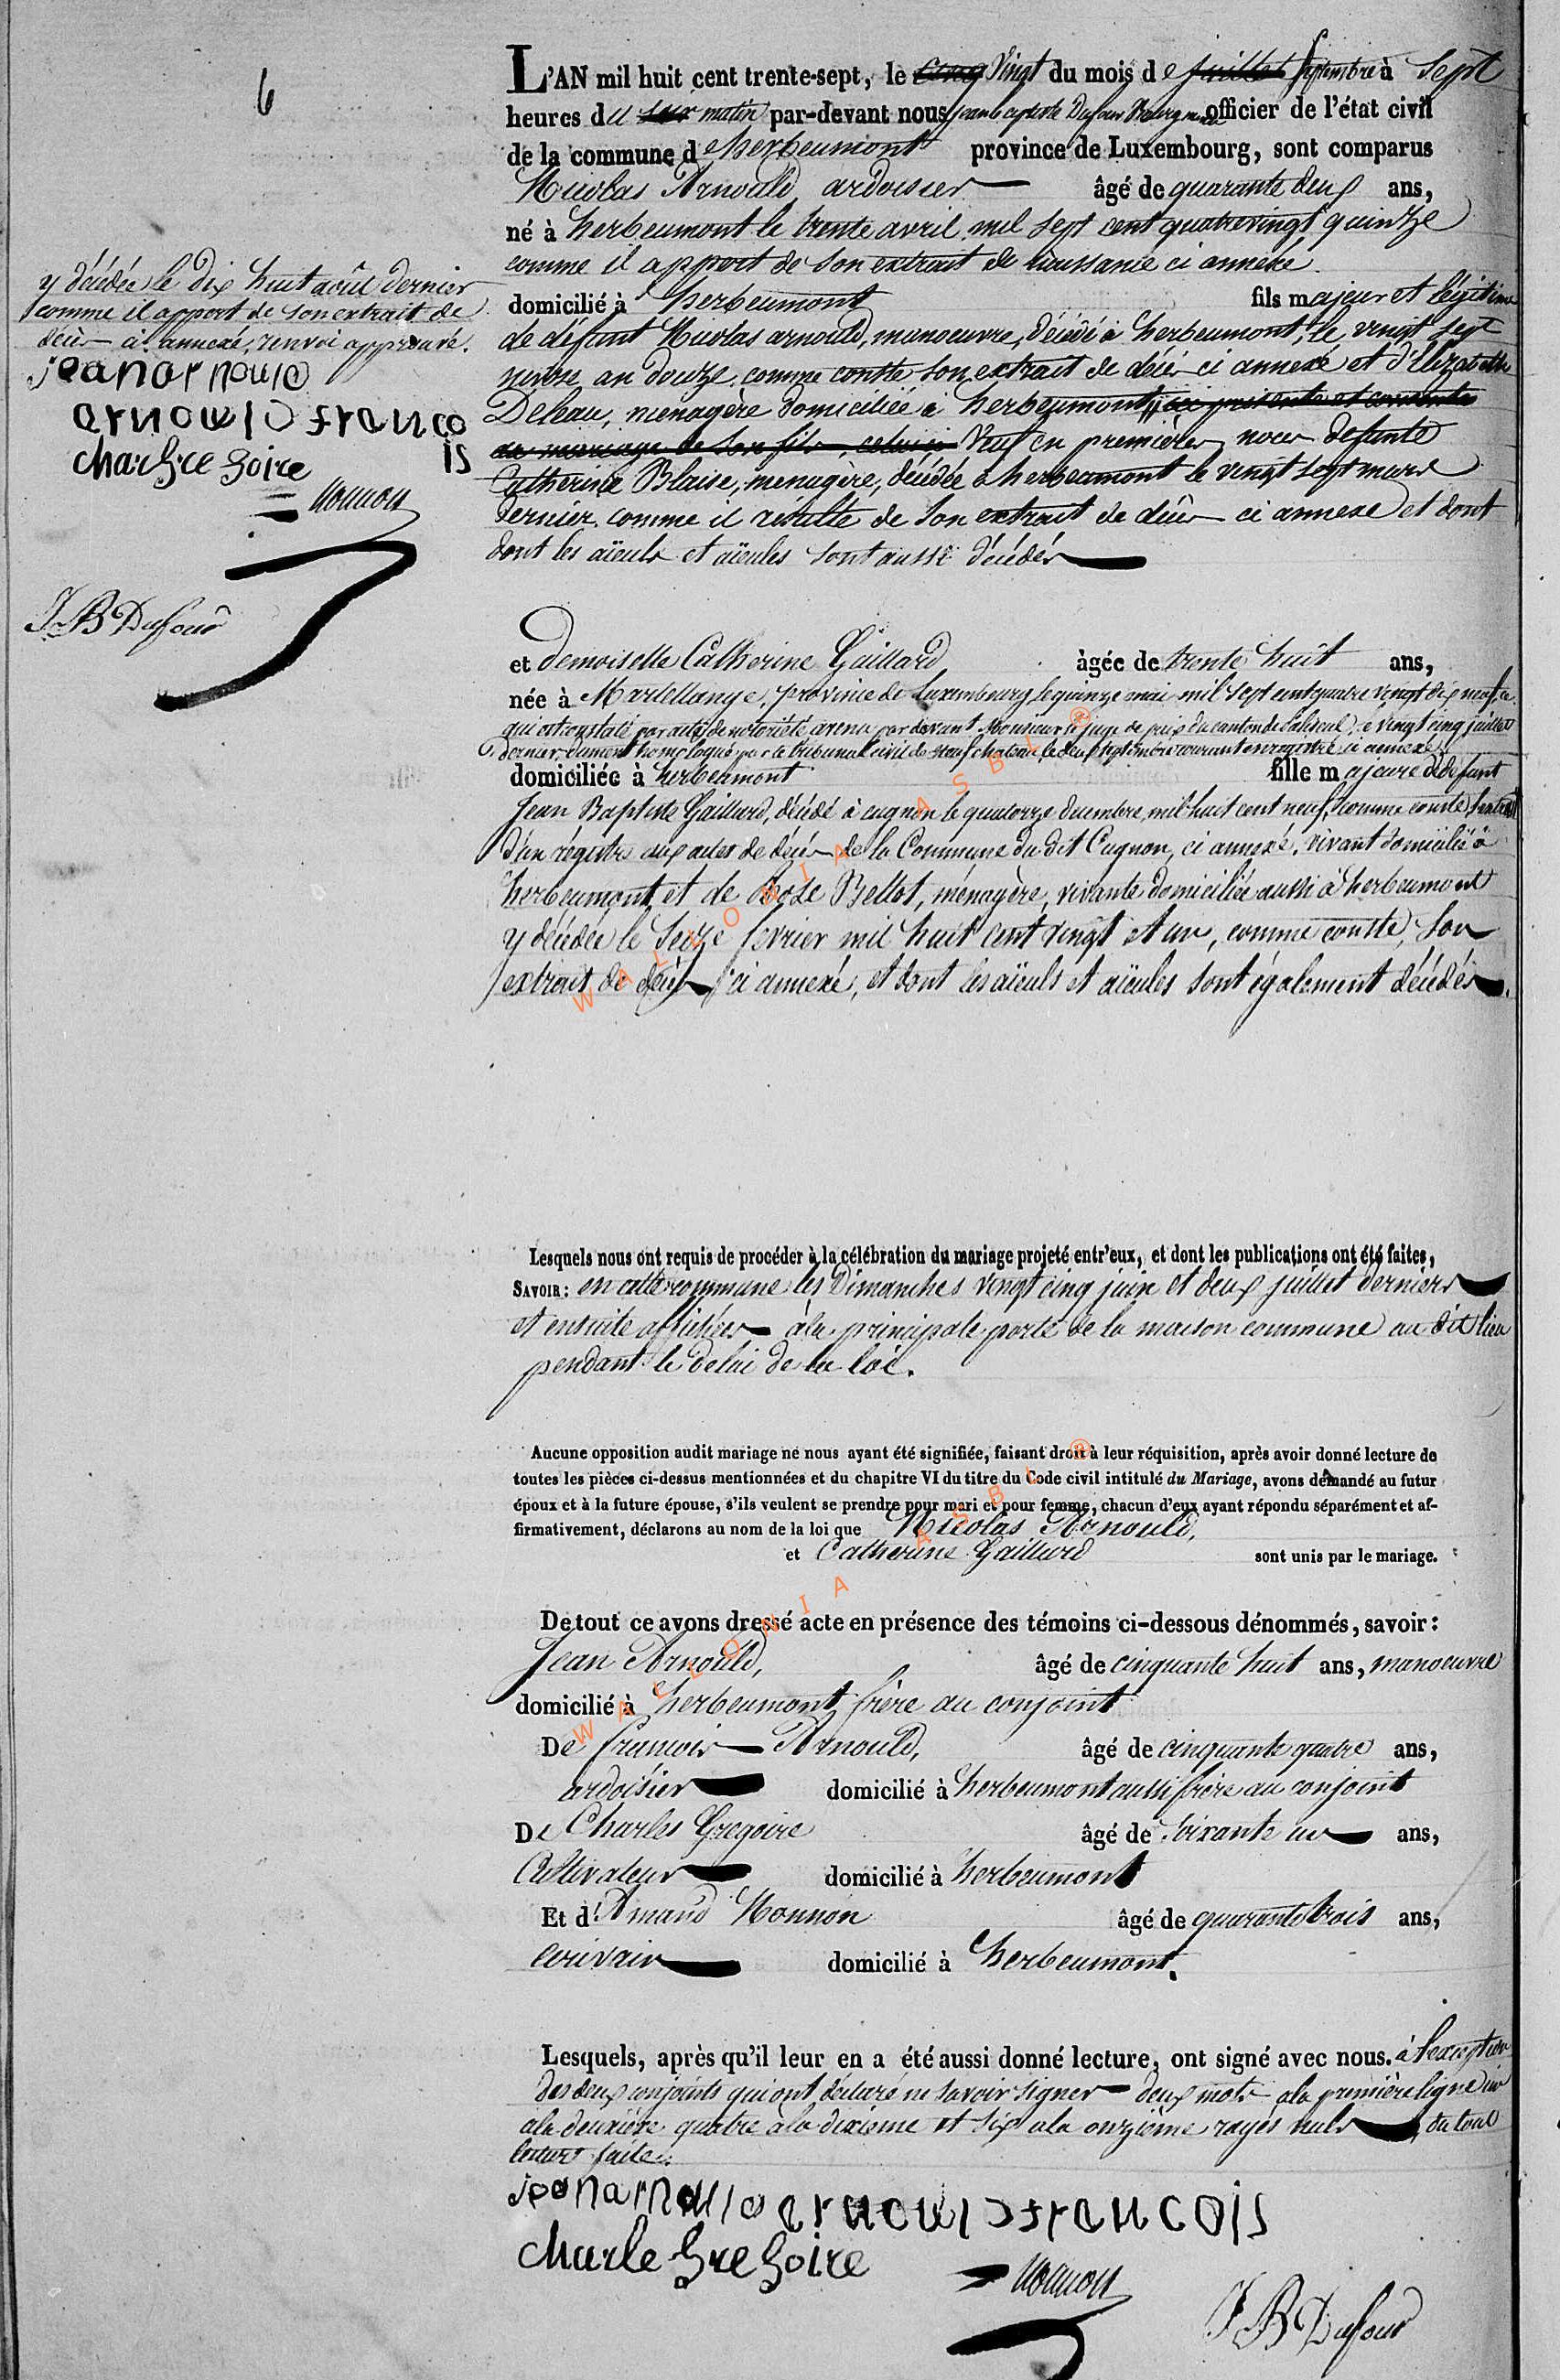 6
L'AN mil huit cent trente-sept, le cinq Vingt du mois de juillet septembre à Sept
heures du soir matin par-devant nous jean baptiste Dufour Bourgmestre officier de l'état civil
de la commune d'herbeumont province de Luxembourg, sont comparus
Nicolas Arnould ardoisier âgé de quarante deux ans,
né à herbeumont le trente avril mil sept cent quatrevingt quinze
comme il appert de son extrait de naissance ci annexé
domicilié à herbeumont fils majeur et légitime
de défunt Nicolas arnould, manoeuvre, décédé à herbeumont, le vingt sept
nivose an douze, comme conste son extrait de décès ci annexé et d'Elizabeth
Deleau, ménagère domiciliée à herbeumont, ici présente et consente
au mariage de son fils, celui ci Veuf en premières noces defunte
Catherine Blaise, menagère, décédée à herbeumont le vingt sept mars
dernier comme il résulte de son extrait de décès ci annexé et dont
dont les aïeuls et aïeules sont aussi décédés
y décédée le dix huit août dernier
comme il appert de son extrait de
décès ci annexé, renvoi approuvé.
jean arnould
arnould franco
is
charle gre goire
Nonnon
J B Dufour
et demoiselle Catherine Gaillard âgée de trente huit ans,
née à Martellange, province de Luxembourg le quinze mai mil sept cent quatre vingt dix neuf, ce
qui est constaté par acte de notoriété avenu par devant Monsieur le juge de paix du canton de Paliseul, le vingt cinq juillet
dernier, dument homologué par le tribunal civil de neufchateau, le deux septembre courant enregistré ci annexé
domiciliée à herbeumont fille majeure de defunt
Jean Baptiste Gaillard, décédé à cugnon le quatorze decembre mil huit cent neuf, comme conste l'extrait
d'un régistre aux actes de décès de la Commune du dit Cugnon, ci annexé, vivant domicilié à
herbeumont et de Rose Bellot, ménagère, vivante domiciliée aussi à herbeumont
y décédée le Seize fevrier mil huit cent vingt et un, comme conste, son
extrait de décès ci annexé, et dont les aïeuls et aïeules sont également décédés.
Lesquels nous ont requis de procéder à la célébration du mariage projeté entr'eux, et dont les publications ont été faites,
SAVOIR: en cette commune les Dimanches vingt cinq juin et deux juillet derniers
et ensuite affichées à la principale porte de la maison commune au dit lieu
pendant le delai de la loi.
Aucune opposition audit mariage ne nous ayant été signifiée, faisant droit à leur réquisition, après avoir donné lecture de
toutes les pièces ci-dessus mentionnées et du chapitre VI du titre du Code civil intitulé du Mariage, avons demandé au futur
époux et à la future épouse, s'ils veulent se prendre pour mari et pour femme, chacun d'eux ayant répondu séparément et af-
firmativement, déclarons au nom de la loi que Nicolas Arnould,
et Catherine Gaillard sont unis par le mariage.
De tout ce avons dressé acte en présence des témoins ci-dessous dénommés, savoir:
Jean Arnould, âgé de cinquante huit ans, manoeuvre
domicilié à herbeumont frère au conjoint
De francois Arnould, âgé de cinquante quatre ans,
ardoisier domicilié à herbeumont aussi frère au conjoint
De Charles Gregoire âgé de Soixante un ans,
Cultivateur domicilié à herbeumont
Et d'Amand Nonnon âgé de quarante trois ans,
ecrivain domicilié à herbeumont.
Lesquels, après qu'il leur en a été aussi donné lecture, ont signé avec nous. à l'exception
des deux conjoints qui ont déclaré ne savoir signer deux mots a la première ligne un
a la deuxième quatre à la dixieme et six a la onzième rayés nuls, du tout
lecture faite.
jean arnould arnould francois
charle gre goire
Nonnon
J B Dufour
WALLONIA ASBL ®
WALLONIA ASBL ®